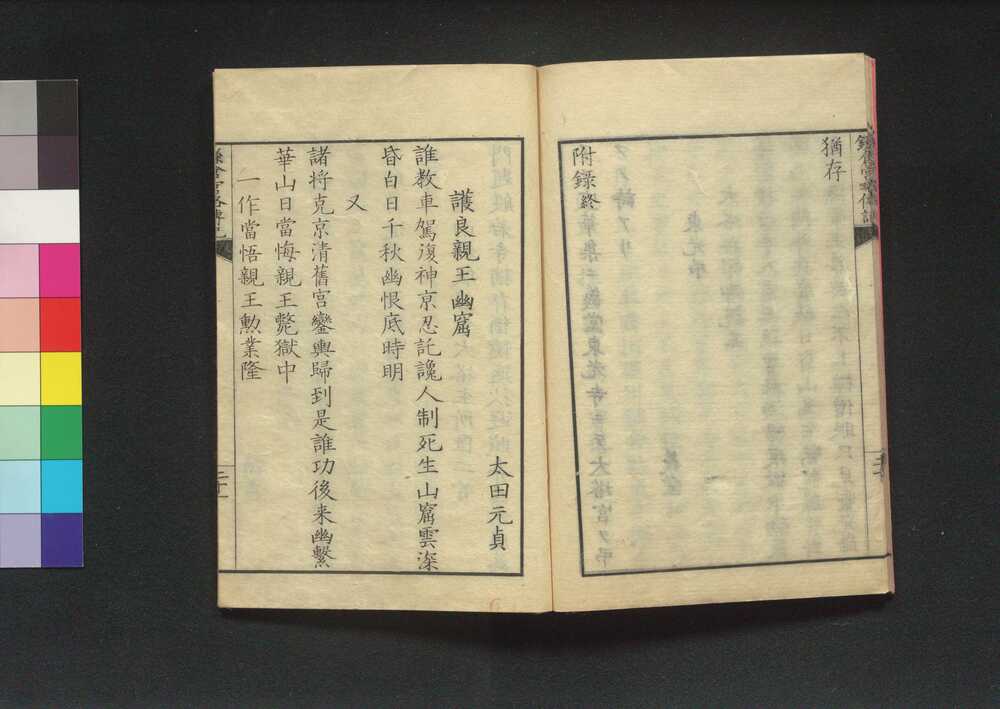 猶存
附録終
護良親王幽窟
太田元貞
誰教車駕復神京忍託讒人制死生山窟雲深
昏白日千秋幽恨底時明
又
諸将克京清舊宮鑾輿歸到是誰功後来幽繋
華山日當悔親王斃獄中
一作當悟親王勲業隆